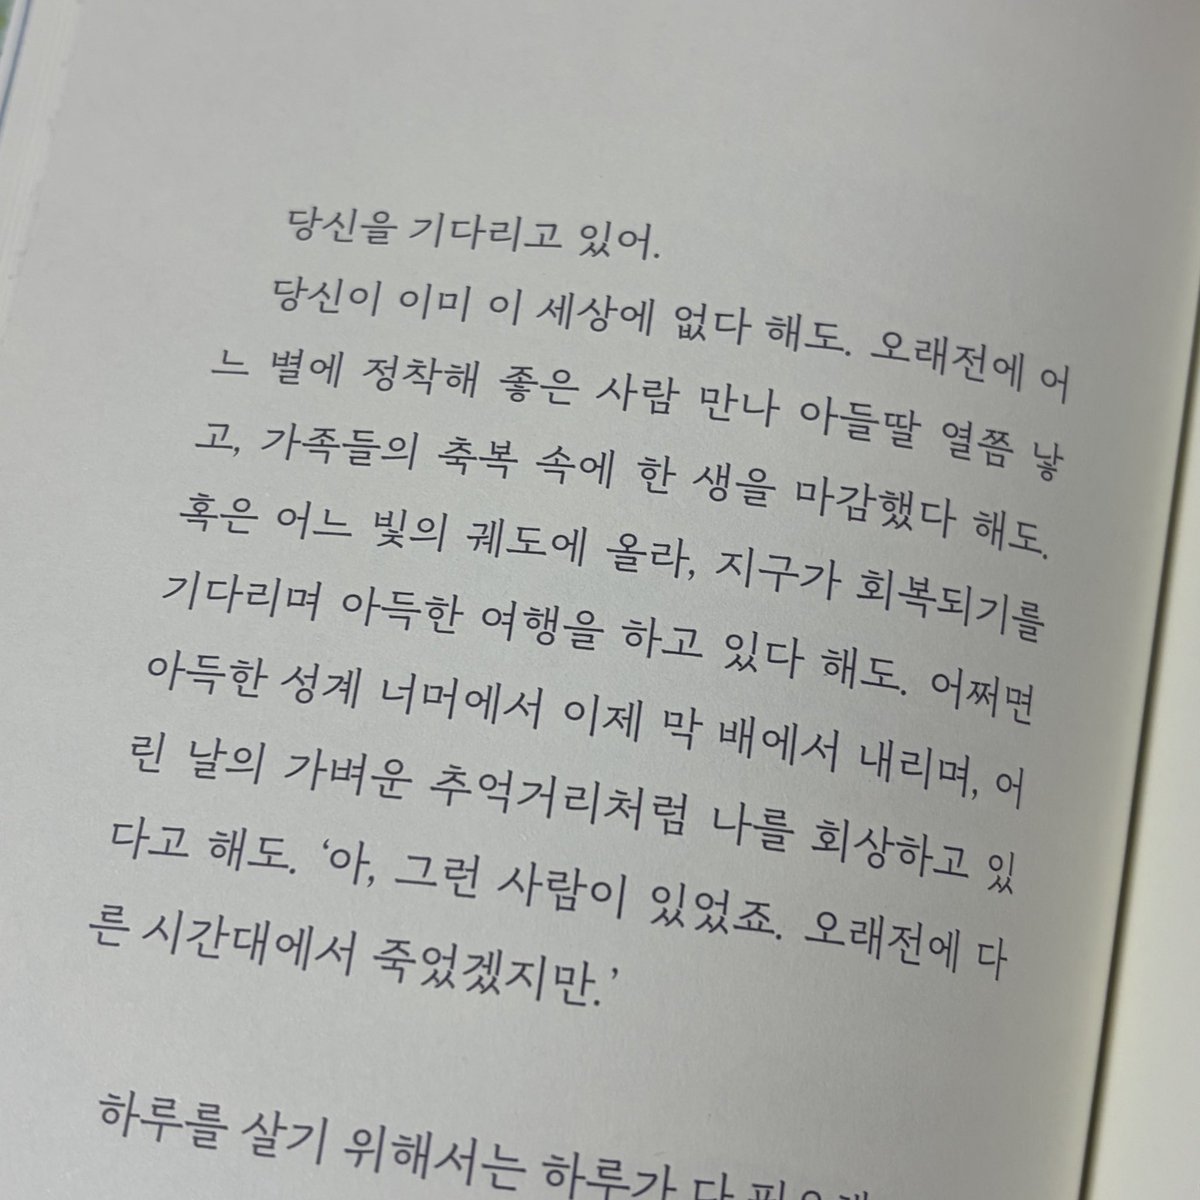 당신을 기다리고 있어.
당신이 이미 이 세상에 없다 해도. 오래전에 어
느 별에 정착해 좋은 사람 만나 아들딸 열쯤 낳
고, 가족들의 축복 속에 한 생을 마감했다 해도.
혹은 어느 빛의 궤도에 올라, 지구가 회복되기를
기다리며 아득한 여행을 하고 있다 해도. 어쩌면
아득한 성계 너머에서 이제 막 배에서 내리며, 어
린 날의 가벼운 추억거리처럼 나를 회상하고 있
다고 해도. ‘아, 그런 사람이 있었죠. 오래전에 다
른 시간대에서 죽었겠지만.’
하루를 살기 위해서는 하루가 다